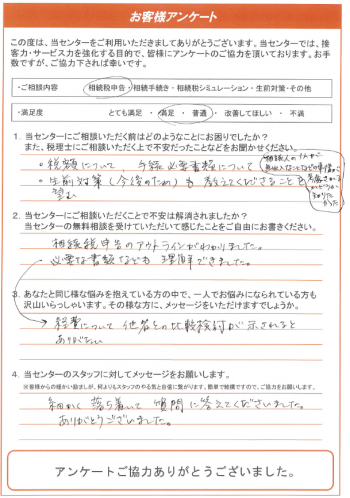 お客様アンケート
この度は、当センターをご利用いただきましてありがとうございます。当センターでは、接
客力・サービス力を強化する目的で、皆様にアンケートのご協力を頂いております。お手
数ですが、ご協力下されば幸いです。
・ご相談内容 相続税申告・相続手続き・相続税シミュレーション・生前対策・その他
・満足度 とても満足 ・ 満足 ・ 普通 ・ 改善してほしい ・ 不満
1. 当センターにご相談いただく前はどのようなことにお困りでしたか？
また、税理士にご相談いただく上で不安だったことなどをお聞かせください。
・税額について、手続 必要書類について
・生前対策（今後のため）も 教えてくださることを
望む
相続人の1人が
2. 当センターにご相談いただくことで不安は解消されましたか？
当センターの無料相談を受けていただいて感じたことをご自由にお書きください。
相続税申告のアウトラインがわかりました。
必要な書類なども 理解できました。
3. あなたと同じ様な悩みを抱えている方の中で、一人でお悩みになられている方も
沢山いらっしゃいます。その様な方に、メッセージをいただけますでしょうか。
経費について 他社との比較検討が示されると
ありがたい
4. 当センターのスタッフに対してメッセージをお願いします。
※皆様からの暖かい励ましが、何よりもスタッフのやる気と自信に繋がります。簡単で結構ですので、ご協力をお願いします。
細かく 落ち着いて 質問に答えてくださいました。
ありがとうございました。
アンケートご協力ありがとうございました。